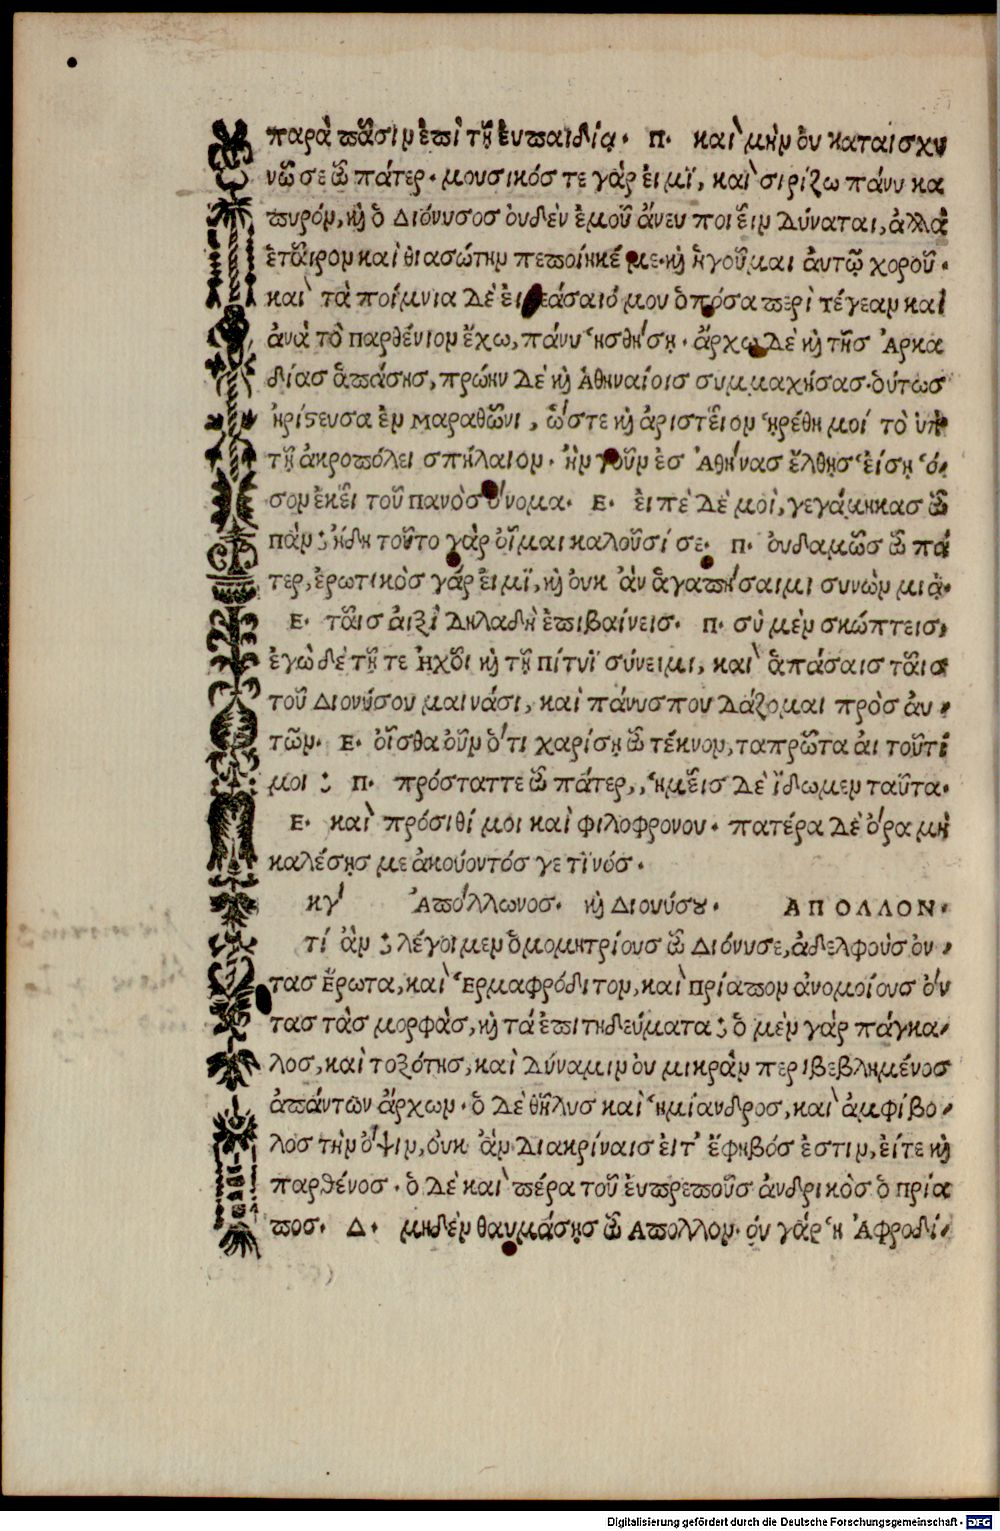 παρὰ πᾶσιν ἐπὶ τῇ εὐπαιδίᾳ. Π. καὶ μὴν ὀυ καταισχυ
νῶ σε ὦ πάτερ. μουσικός τε γάρ ἐιμὶ, καὶ σιρίζω πάνυ κα
πυρόν, καὶ ὁ Διόνυσος ὀυδὲν ἐμοῦ ἄνευ ποιεῖν δύναται, ἀλλὰ
ἑταῖρον καὶ θιασώτην πεποίηκέ με. καὶ ἡγοῦμαι ἀυτῷ χοροῦ.
καὶ τὰ ποίμνια δὲ ἐι θεάσαιό μου ὁπόσα περὶ τέγεαν καὶ
ἀνὰ τὸ παρθένιον ἔχω, πάνυ ἡσθήσῃ. ἄρχω δὲ καὶ τῆς Ἀρκα
δίας ἁπάσης, πρώην δὲ καὶ Ἀθηναίοις συμμαχήσας. ὁύτως
ἠρίστευσα ἐν Μαραθῶνι, ὥστε καὶ ἀριστεῖον ᾑρέθη μοί τὸ ὑπὸ
τῇ ἀκροπόλει σπήλαιον. ἢν γοῦν ἐς Ἀθήνας ἔλθῃς ἑίσῃ ὅ-
σον ἐκεῖ τοῦ πανὸς ὄνομα. Ε. ἐιπὲ δὲ μοὶ, γεγάμηκας ὦ
πὰν ; ἤδη τοῦτο γὰρ οἶμαι καλοῦσί σε. Π. ὀυδαμῶς ὦ πά
τερ, ἐρωτικὸς γάρ ἐιμὶ, καὶ ὀυκ ἂν ἀγαπήσαιμι συνὼν μιᾷ.
Ε. ταῖς ἀιξὶ δηλαδὴ ἐπιβαίνεις. Π. σὺ μὲν σκώπτεις,
ἐγὼ δὲ τῇ τε Ἠχοῖ καὶ τῇ πίτυϊ σύνειμι, καὶ ἁπάσαις ταῖς
τοῦ Διονύσου μαινάσι, καὶ πάνυ σπουδάζομαι πρὸς ἀυ-
τῶν. Ε. οἶσθα οὖν ὅτι χαρίσῃ ὦ τέκνον, τα πρῶτα ἀιτοῦντί
μοι ; Π. πρόσταττε ὦ πάτερ,, ἡμεῖς δὲ ἴδωμεν ταῦτα.
Ε. καὶ πρόσιθί μοι καὶ φιλοφρονου. πατέρα δὲ ὅρα μὴ
καλέσῃς με ἀκούοντός γε τινός.
κγ´ Ἀπόλλωνος. καὶ Διονύσου. ΑΠΟΛΛΟΝ.
τί ἂν ; λέγοιμεν ὁμομητρίους ὦ Διόνυσε, ἀδελφοὺς ὄν-
τας Ἔρωτα, καὶ Ἑρμαφρόδιτον, καὶ Πρίαπον ἀνομοίους ὄν
τας τὰς μορφὰς, καὶ τά ἐπιτηδεύματα ; ὁ μὲν γὰρ πάγκα-
λος, καὶ τοξότης, καὶ δύναμιν ὀυ μικρὰν περιβεβλημένος
ἁπάντων ἄρχων. ὁ δὲ θῆλυς καὶ ἡμίανδρος, καὶ ἀμφίβο-
λος τὴν ὄψιν, ὀυκ ἂν διακρίναις ἐιτ' ἔφηβός ἐστιν, ἐίτε καὶ
παρθένος. ὁ δὲ καὶ πέρα τοῦ ἐυπρεποῦς ἀνδρικὸς ὁ πρία
πος. Δ. μηδὲν θαυμάσῃς ὦ Ἀπολλον. ὀυ γάρ ἡ Ἀφροδί-
Digitalisierung gefördert durch die Deutsche Forschungsgemeinschaft - DFG